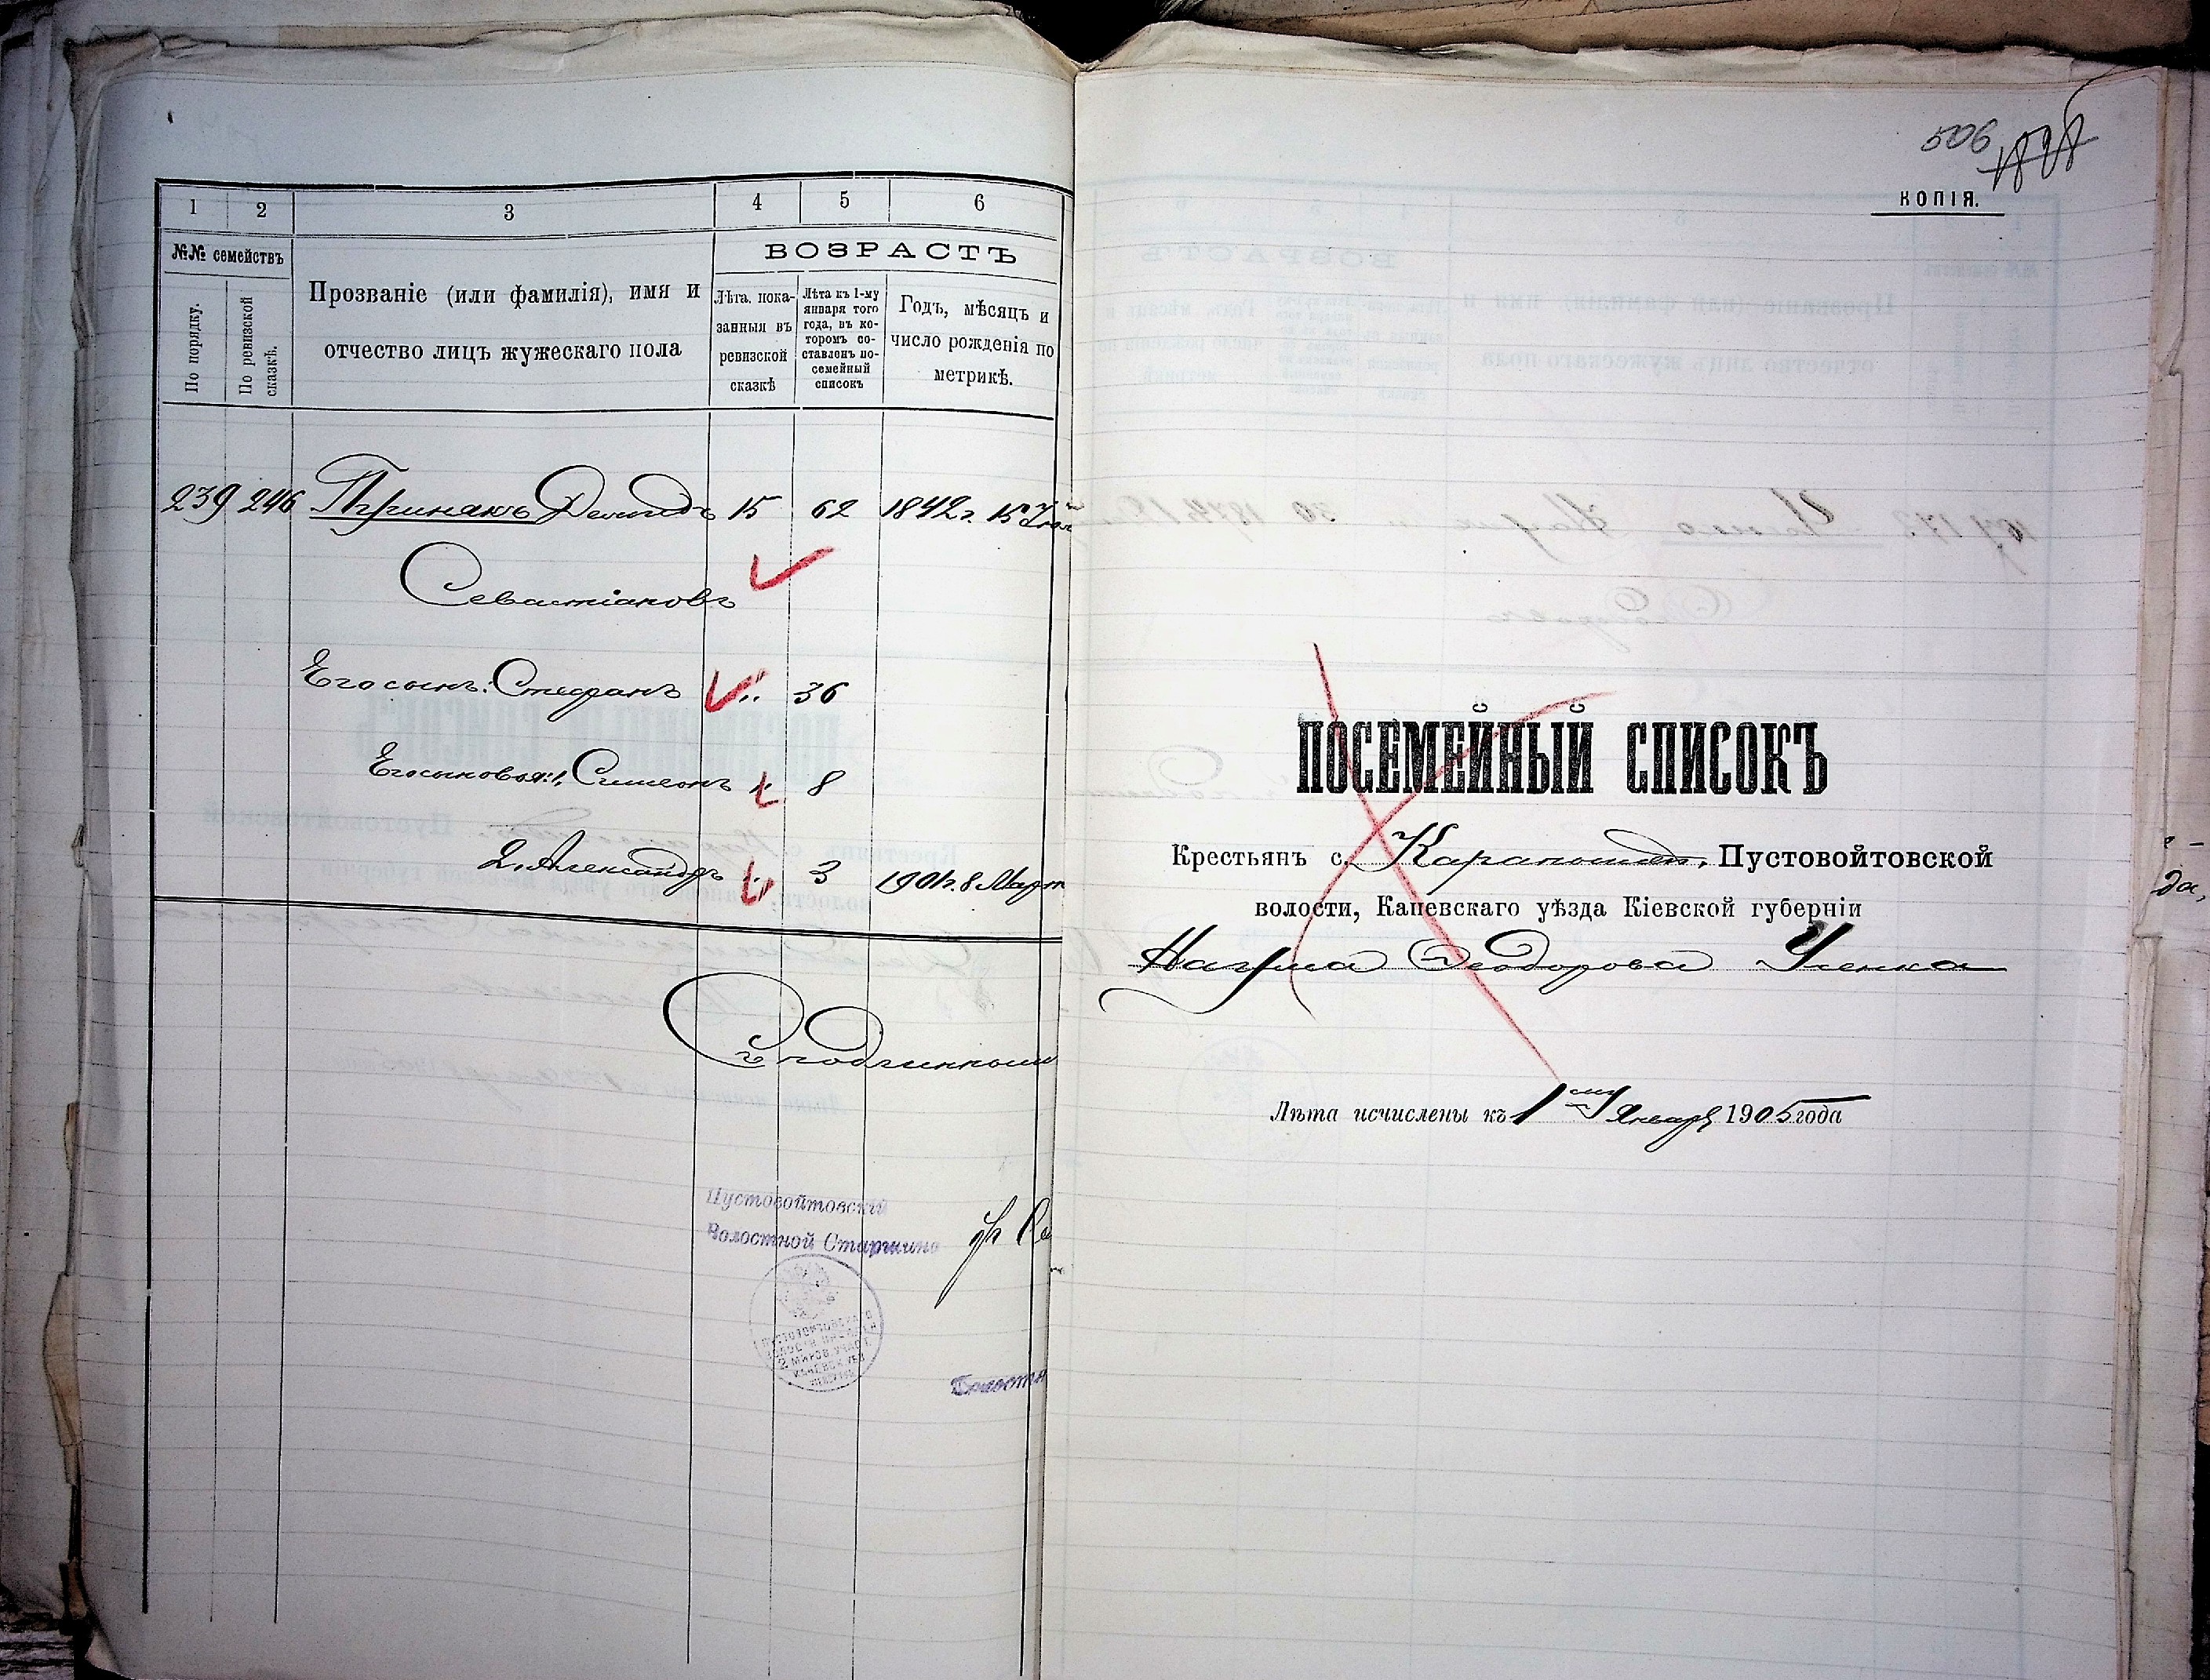 1 2 3 4 5 6
№№ семействъ
По порядку.
По ревизской сказкѣ.
Прозваніе (или фамилія), имя и
отчество лицъ жужескаго пола
ВОЗРАСТЪ
Лѣта, пока-
занныя въ
ревизской
сказкѣ
Лѣта къ 1-му
января того
года, въ ко-
торомъ со-
ставленъ по-
семейный
списокъ
Годъ, мѣсяцъ и
число рожденія по
метрикѣ.
239 246 15 62 1842г. 15
Севастіановъ
Его сынъ: Стефанъ " 36
Его сыновья: 1, Симеонъ " 8
2, Александръ " 3 1901г. 8 Март
Съ подлинным
Пустовойтовскій
Волостной Старшина
Волостн
506
КОПІЯ.
ПОСЕМЕЙНЫЙ СПИСОКЪ
Крестьянъ с. Карапышей, Пустовойтовской
волости, Каневскаго уѣзда Кіевской губерніи
Наума Ѳеодорова Усенка
Лѣта исчислены къ 1 Января 1905 года
да,